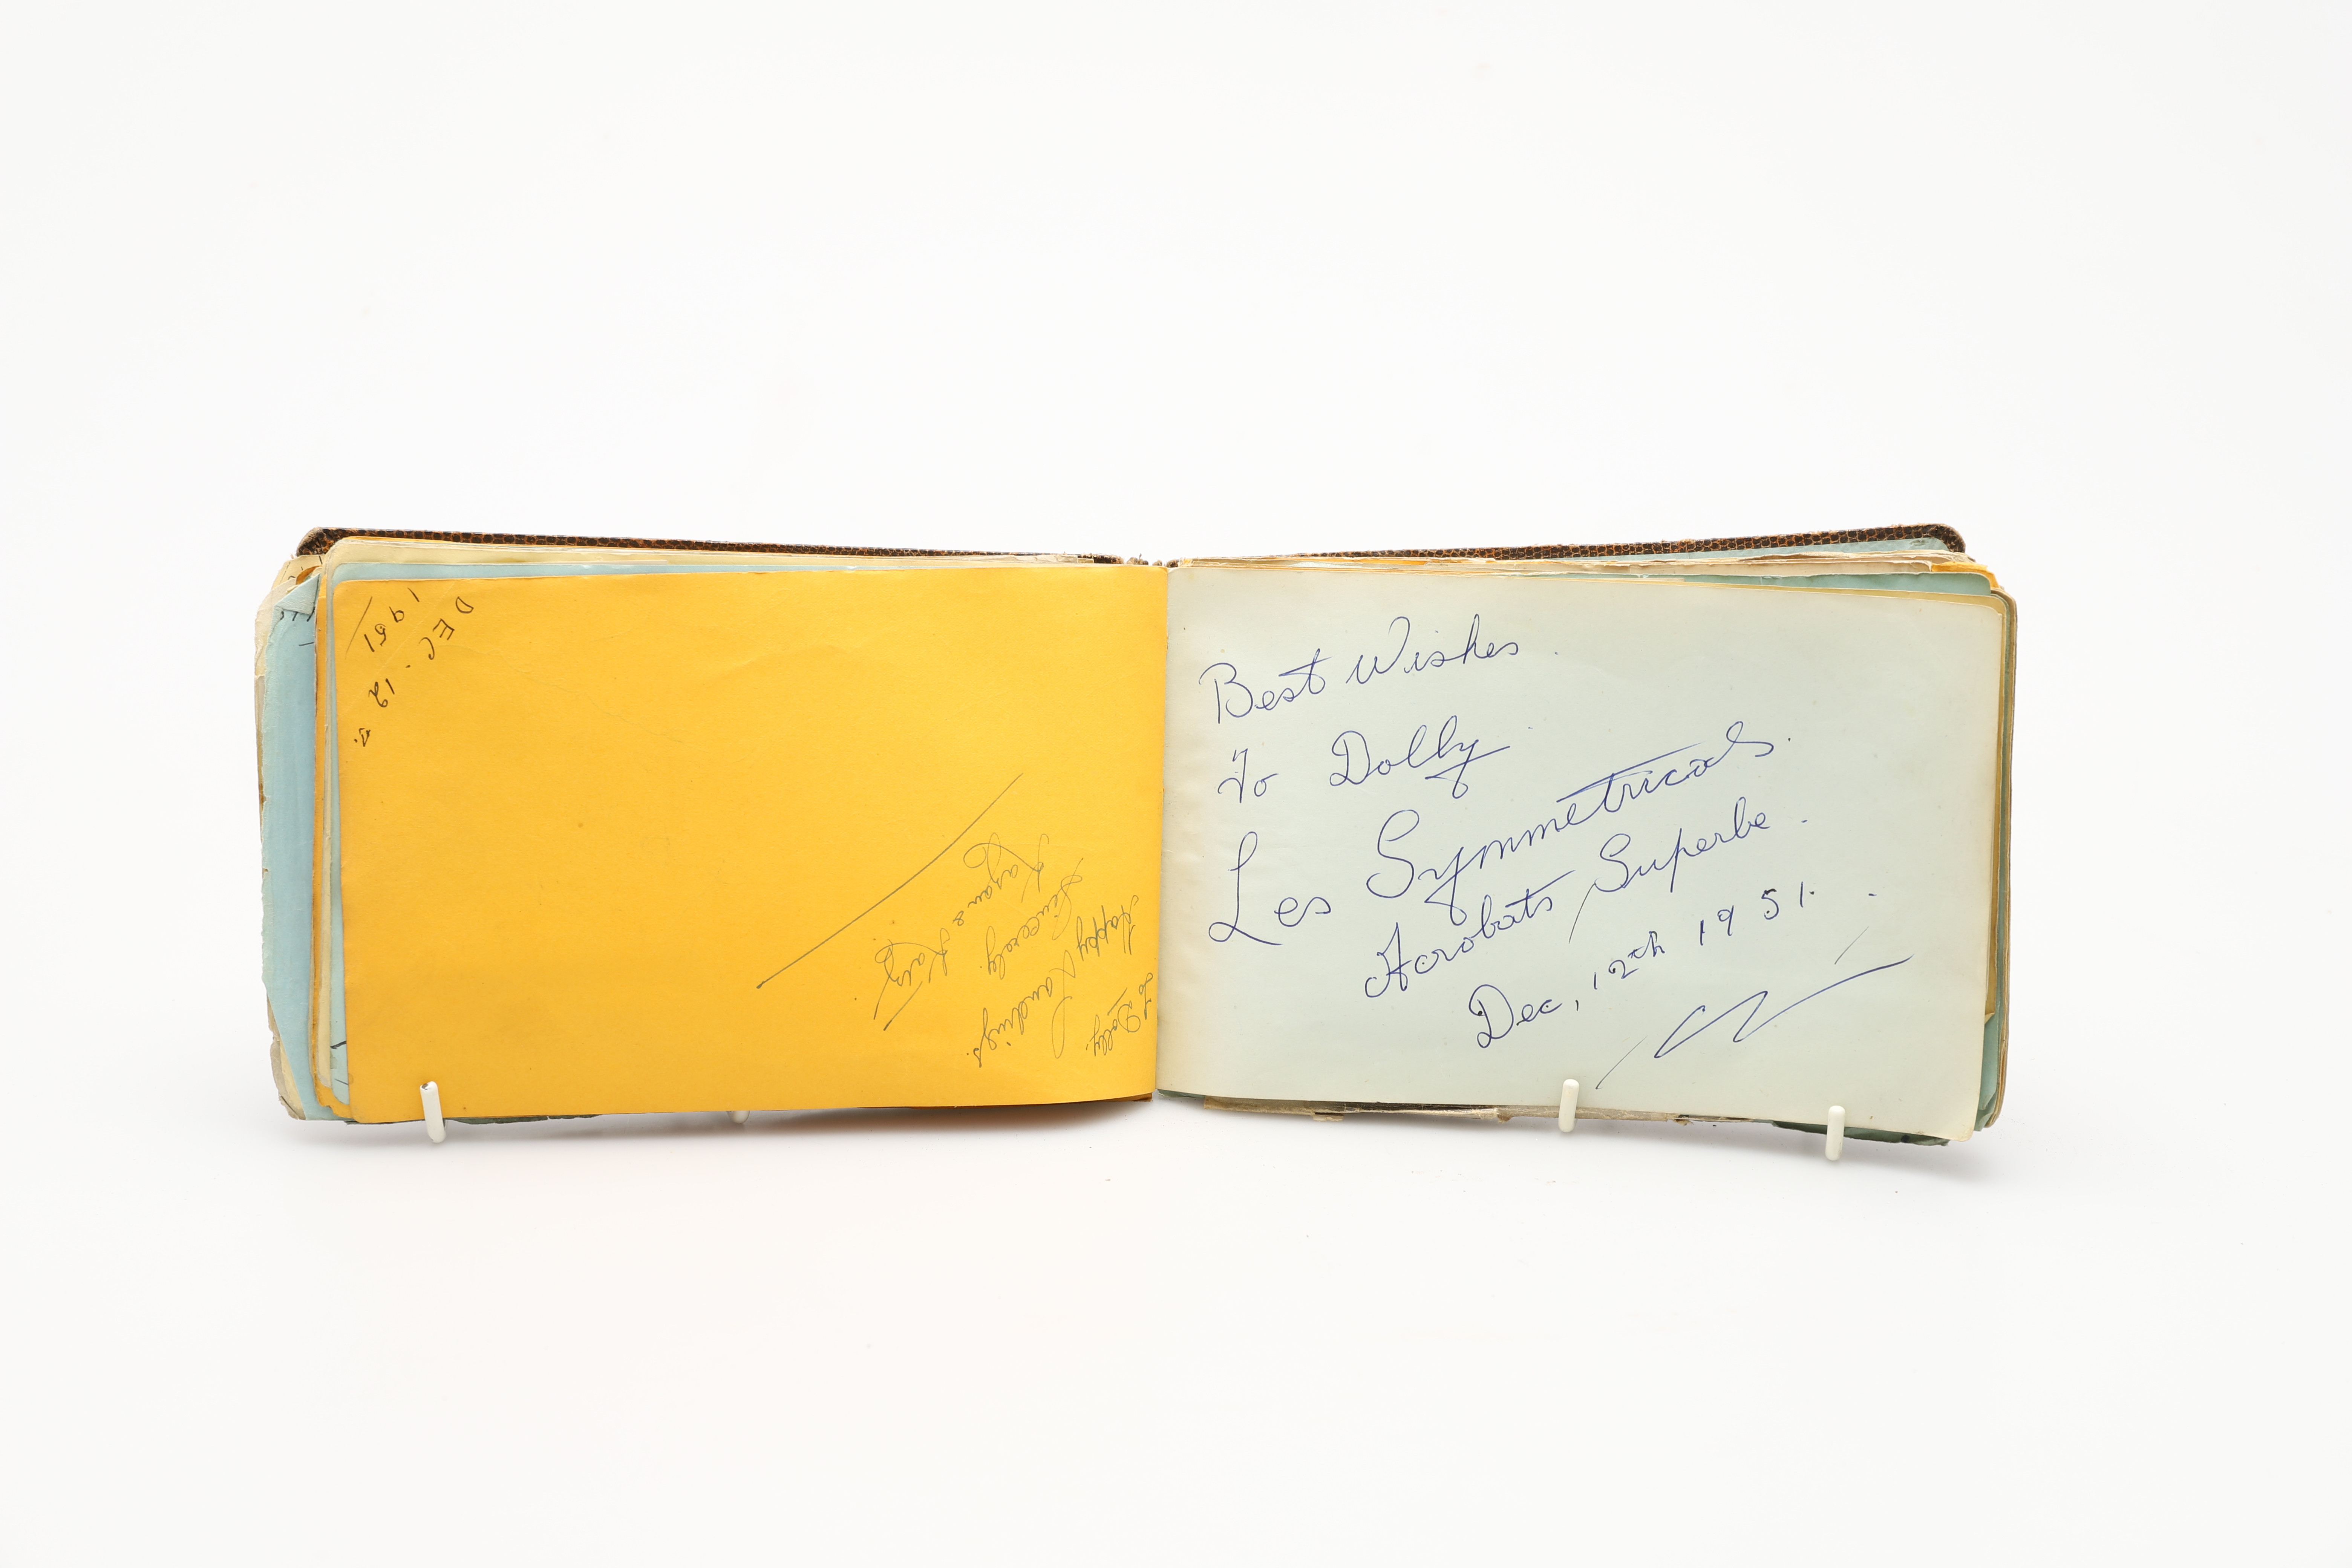 To Dolly.
Happy Landings.
Sincerely.
Kazan & Katz
DEC. 12th.
1951
Best Wishes.
To Dolly
Les Symmetricals.
Acrobats Superbe.
Dec, 12th 1951.